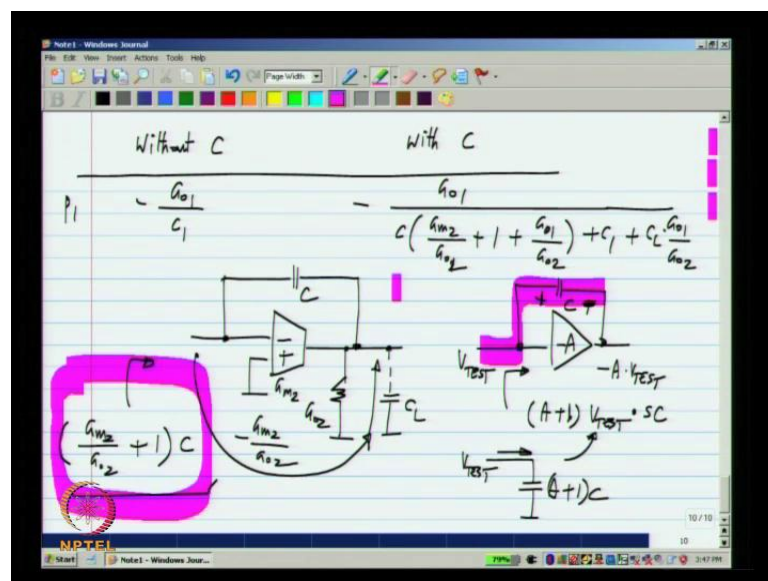 Note1 - Windows Journal
File Edit View Insert Actions Tools Help
Page Width
B I
Without C
With C
P1
- Go1 / C1
- Go1 / C(Gm2/Go2 + 1 + Go1/Go2) + C1 + CL·Go1/Go2
C
+ C -
-
+
-A
VTEST
-A·VTEST
Gm2
Go2
CL
(A+1) VTEST · sC
(Gm2/Go2 + 1) C
-Gm2/Go2
VTEST
(A+1)C
10/10
10
NPTEL
Start
Note1 - Windows Jour...
79%
3:47 PM